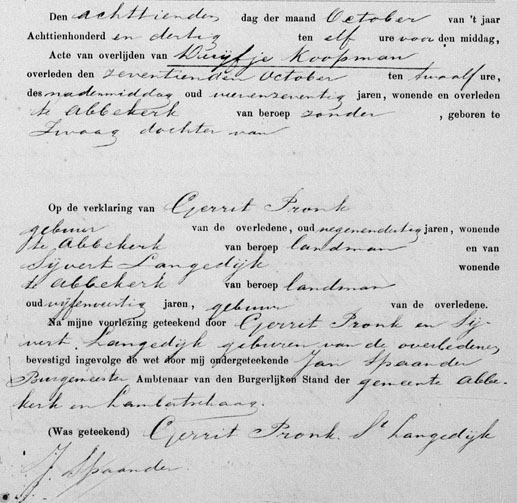 Den achttienden dag der maand October van 't jaar
Achttienhonderd en dertig ten elf ure voor den middag,
Acte van overlijden van Duijfje Koopman
overleden den zeventienden October ten twaalf ure,
des nademiddag oud vierenzeventig jaren, wonende en overleden
te Abbekerk van beroep zonder , geboren te
Zwaag dochter van
Op de verklaring van Gerrit Pronk
gebuur van de overledene, oud negenendertig jaren, wonende
te Abbekerk van beroep landman en van
Sijvert Langedijk wonende
te Abbekerk van beroep landman
oud vijfenveertig jaren, gebuur van de overledene.
Na mijne voorlezing geteekend door Gerrit Pronk en Sij-
vert Langedijk geburen van de overledene,
bevestigd ingevolge de wet door mij ondergeteekende Jan Spaander
Burgemeester Ambtenaar van den Burgerlijken Stand der gemeente Abbe-
kerk en Lambertschaag.
(Was geteekend) Gerrit Pronk. St Langedijk
J. Spaander.